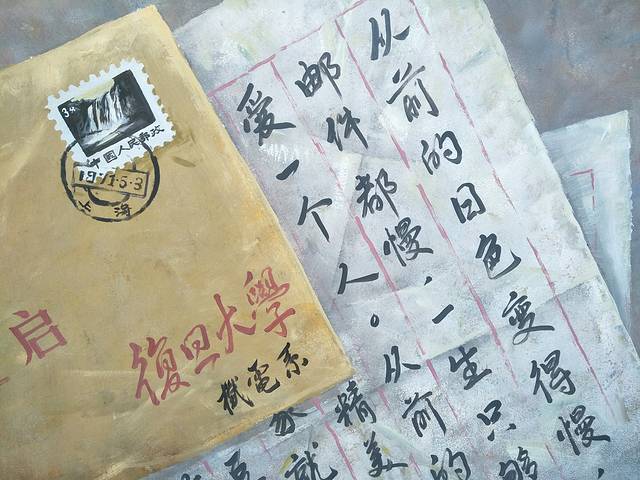 中國人民郵政
上海
启
復旦大學
機電系
从前的日色变得慢，
邮件都慢，一生只够
爱一个人。从前的
精美
就